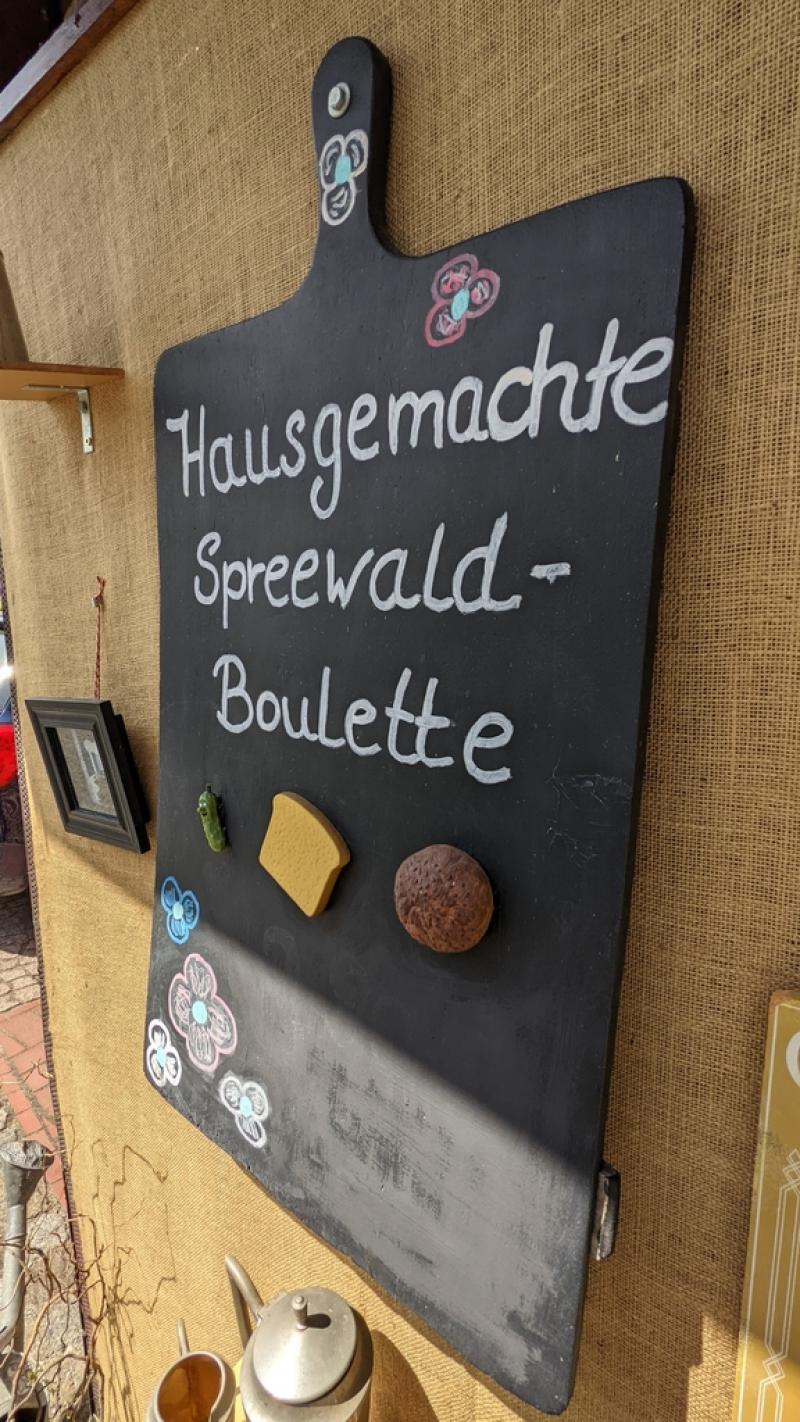 Hausgemachte
Spreewald-
Boulette